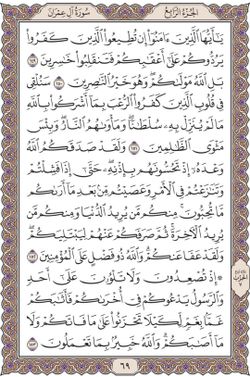 الجزء الرابع سورة آل عمران
يَٰٓأَيُّهَا ٱلَّذِينَ ءَامَنُوٓاْ إِن تُطِيعُواْ ٱلَّذِينَ كَفَرُواْ
يَرُدُّوكُمْ عَلَىٰٓ أَعْقَٰبِكُمْ فَتَنقَلِبُواْ خَٰسِرِينَ ١٤٩
بَلِ ٱللَّهُ مَوْلَىٰكُمْ وَهُوَ خَيْرُ ٱلنَّٰصِرِينَ ١٥٠ سَنُلْقِى
فِى قُلُوبِ ٱلَّذِينَ كَفَرُواْ ٱلرُّعْبَ بِمَآ أَشْرَكُواْ بِٱللَّهِ
مَا لَمْ يُنَزِّلْ بِهِۦ سُلْطَٰنًا وَمَأْوَىٰهُمُ ٱلنَّارُ وَبِئْسَ
مَثْوَى ٱلظَّٰلِمِينَ ١٥١ وَلَقَدْ صَدَقَكُمُ ٱللَّهُ
وَعْدَهُۥٓ إِذْ تَحُسُّونَهُم بِإِذْنِهِۦ حَتَّىٰٓ إِذَا فَشِلْتُمْ
وَتَنَٰزَعْتُمْ فِى ٱلْأَمْرِ وَعَصَيْتُم مِّنۢ بَعْدِ مَآ أَرَىٰكُم
مَّا تُحِبُّونَ مِنكُم مَّن يُرِيدُ ٱلدُّنْيَا وَمِنكُم مَّن
يُرِيدُ ٱلْءَاخِرَةَ ثُمَّ صَرَفَكُمْ عَنْهُمْ لِيَبْتَلِيَكُمْ
وَلَقَدْ عَفَا عَنكُمْ وَٱللَّهُ ذُو فَضْلٍ عَلَى ٱلْمُؤْمِنِينَ ١٥٢
۞ إِذْ تُصْعِدُونَ وَلَا تَلْوُۥنَ عَلَىٰٓ أَحَدٍ
وَٱلرَّسُولُ يَدْعُوكُمْ فِىٓ أُخْرَىٰكُمْ فَأَثَٰبَكُمْ
غَمَّۢا بِغَمٍّ لِّكَيْلَا تَحْزَنُواْ عَلَىٰ مَا فَاتَكُمْ وَلَا
مَآ أَصَٰبَكُمْ وَٱللَّهُ خَبِيرُۢ بِمَا تَعْمَلُونَ ١٥٣
٦٩